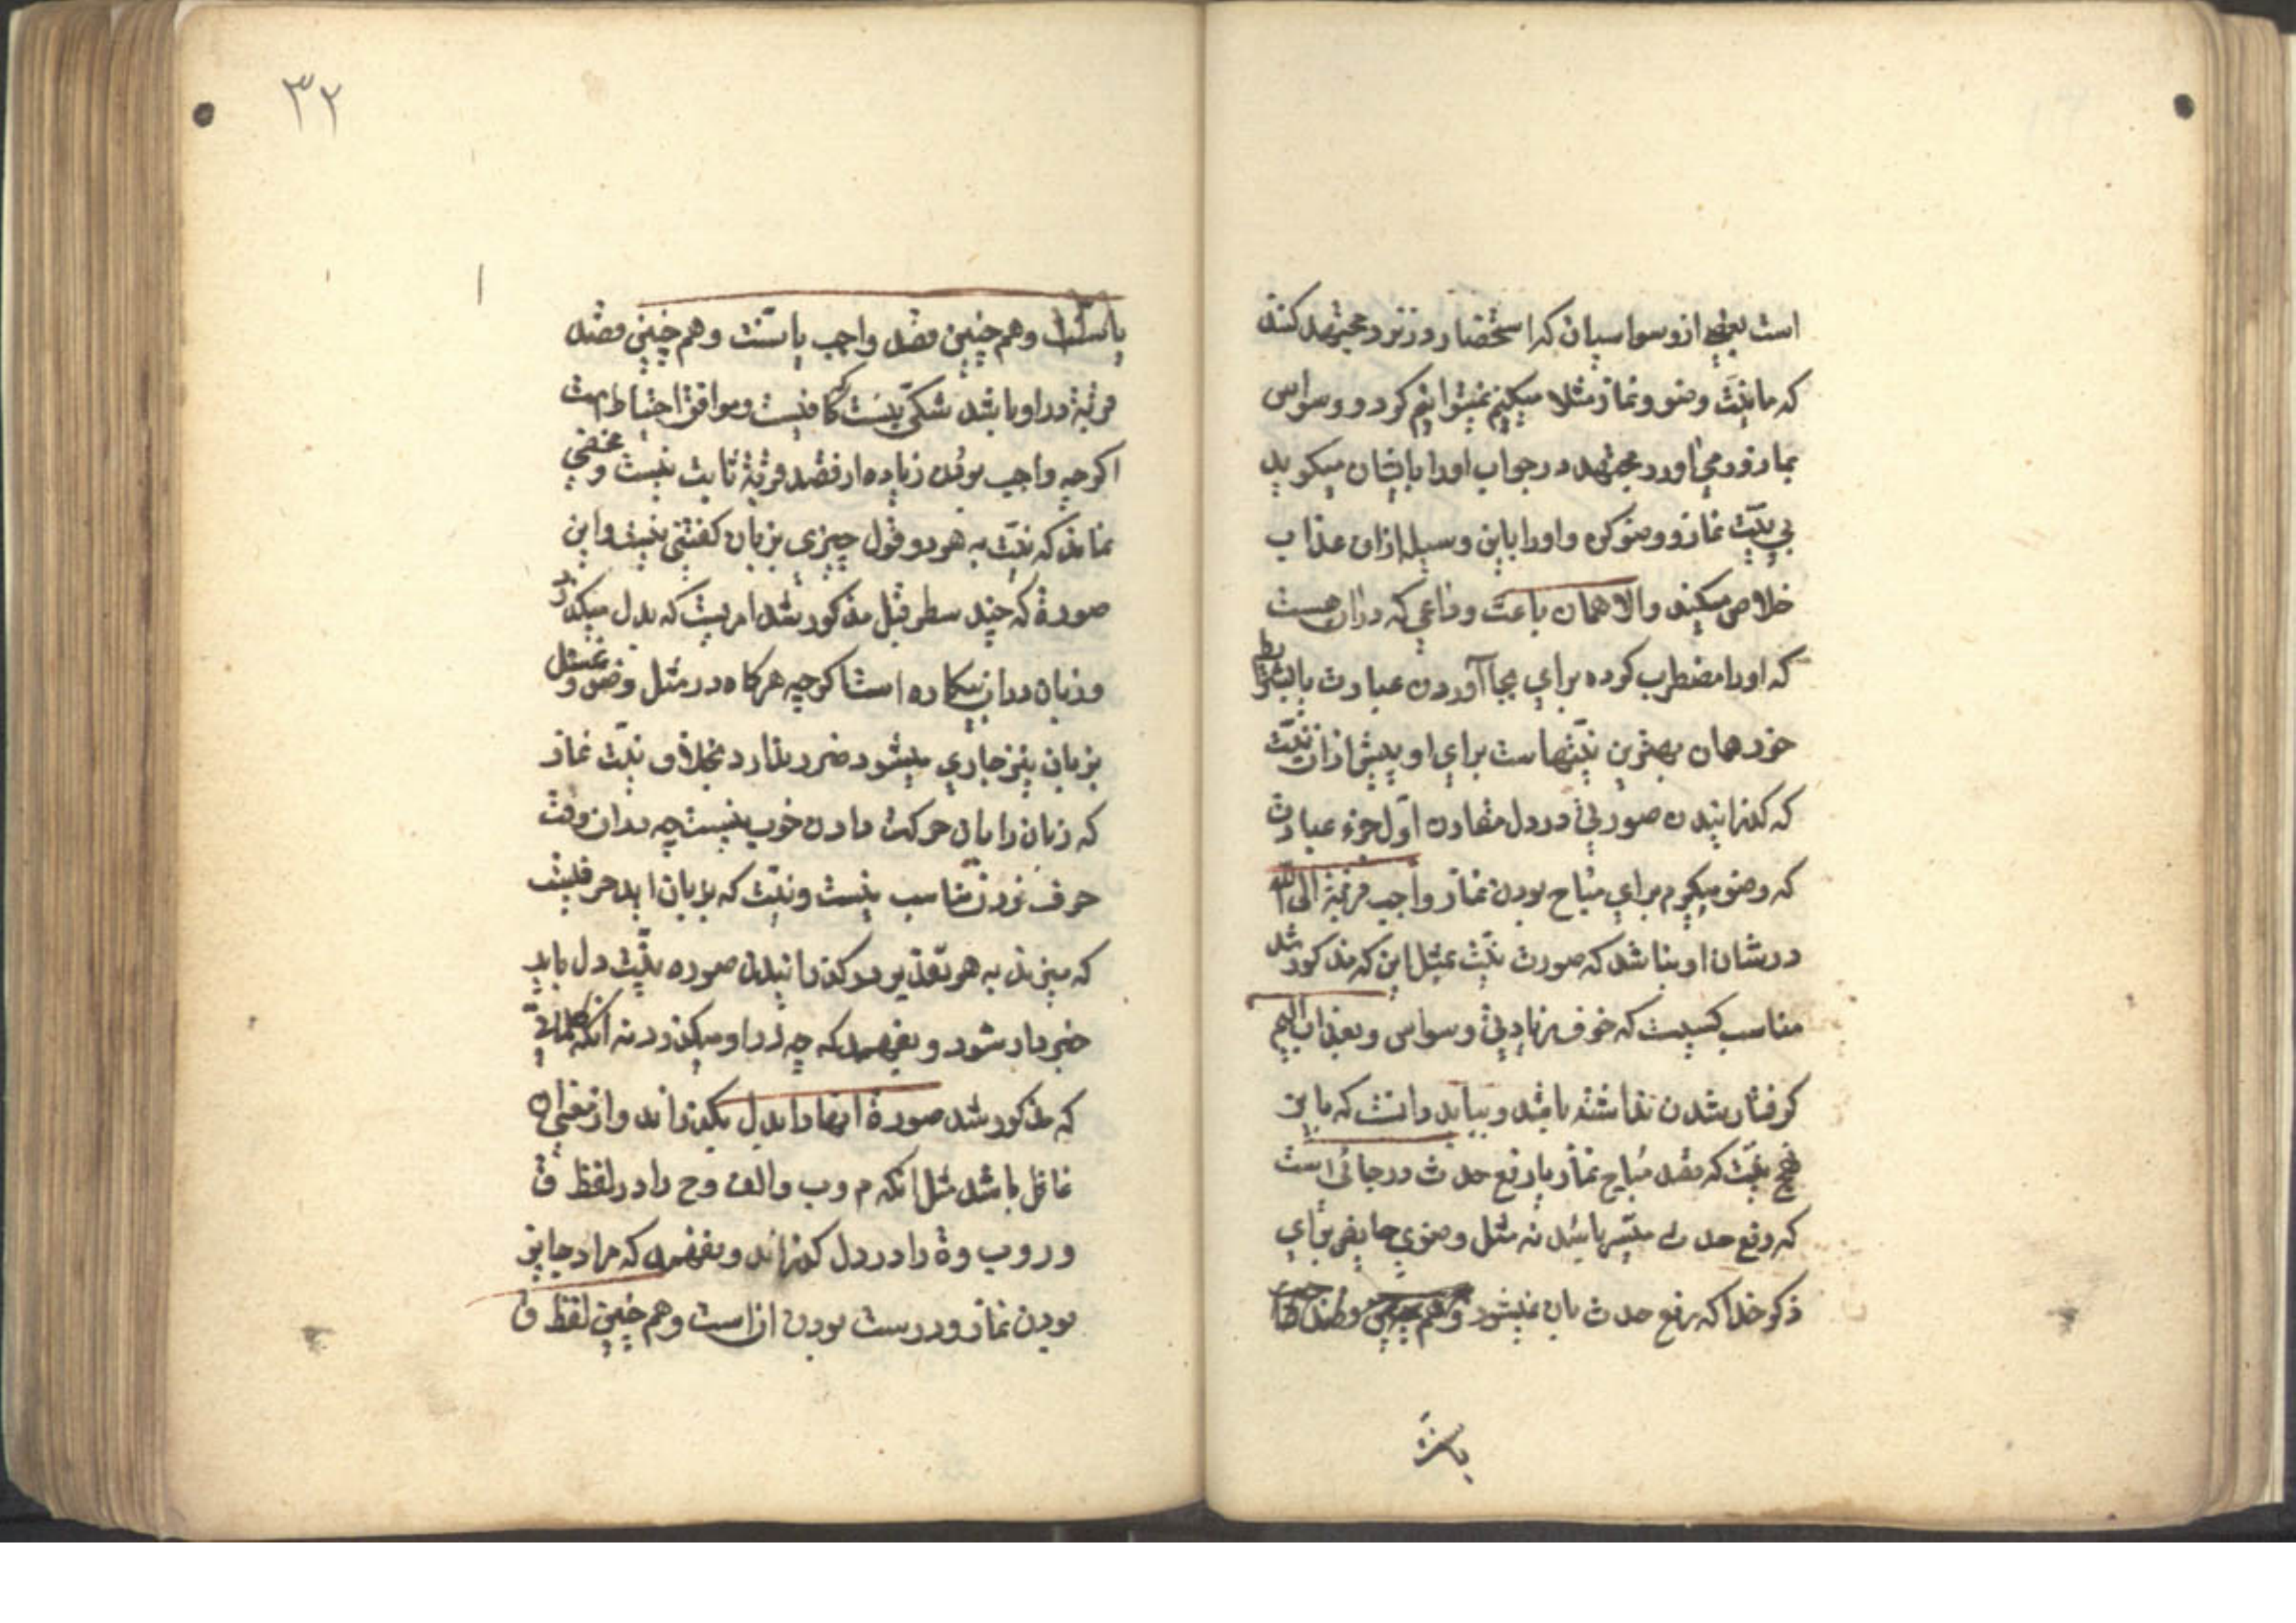 است یعنی از وسواسیان که استحضار در نزد مجتهد کنند
که ما نیت وضو و نماز مثلا میکنیم نمیتوانیم کرد و وسواس
بما زور می آورد مجتهد در جواب او را با ایشان میکوید
بی نیت نماز و وضو کن و او را باین وسیله ازان عذاب
خلاص میکند والا همان باعث و داعی که دران هست
که او را مضطرب کرده برای بجا آوردن عبادت بالشرایط
خود همان بهترین نیتهاست برای او بیش ازان نیت
که کذرانیدن صورتی در دل مقارن اول جزء عبادت
که وضو میکیرم برای مباح بودن نماز واجب قربة الی الله
در شان او بنا شد که صورت نیت بمثل این که مذکور شد
مناسب کسیست که خوف بزیادتی وسواس و بعذاب الیم
کرفتار شدن نداشته باشد و بباید دانست که باین
نهج نیت که مقصد مباح نماز یا رفع حدث در جائی است
که رفع حدث میسر باشد نه مثل وضوی حایض برای
ذکر خدا که رفع حدث بان نمیشود
۳۲
وهم چنین قصد واجب یا سنت وهم چنین قصد
قربة در او باشد شکی نیست که کافیست و موافق احتیاط است
اکرچه واجب بودن زیاده از قصد قربة ثابت نیست و مخفی
نماند که نیت به هر دو قول چیزی بزبان کفتنی نیست و این
صورة که چند سطر قبل مذکور شد امریست که بدل میکذرد
وزبان دران بیکاره است اکرچه هرکاه در مثل وضو و غسل
بزبان نیز جاری میشود ضرر ندارد بخلاف نیت نماز
که زبان را بان حرکت دادن خوب نیست چه دران وقت
حرف زدن مناسب نیست و نیت که بزبان اید حرفیست
که میزند به هر تقدیر در کذرانیدن صوره نیت دل باید
خبردار شود و بفهمد که چه در او میکذرد نه آنکه کلماتی
که مذکور شد صورة انها را بدل بکذراند و از معنی ان
غافل باشد مثل انکه م و ب و الف و ح را در لفظ ق
و ر و ب و ة را در دل کذراند و بفهمد که مراد جایز
بودن نماز و درست بودن ان است وهم چنین لفظ ق